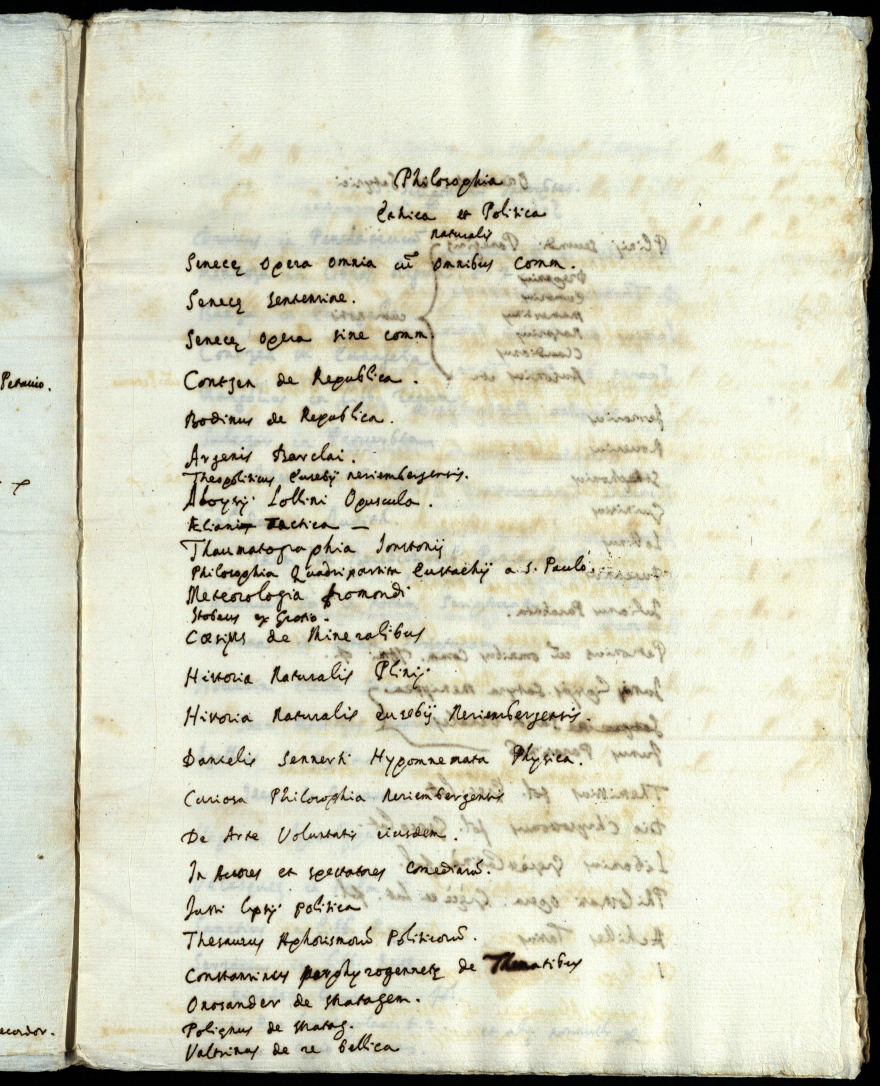 Philosophia
Ethica et Politica
naturalis
Senecę Opera omnia cū omnibus comm.
Senecę sententiae.
Senecę opera sine comm.
Contzen de Republica.
Bodinus de Republica.
Argenis Barclai.
Theopoliticus Eusebij neriembergensis.
Aloysij Lollini Opuscula.
Æliani Tactica
Thaumatographia Jonstonij
Philosophia Quadripartita Eustachij a S. Paulo
Meteorologia fromondi
Stobeus ex Grotio.
Cæsius de Mineralibus
Historia Naturalis Plinij
Historia Naturalis Eusebij Neriembergensis.
Danielis Sennerti Hypomnemata Physica.
Curiosa Philosophia Neriembergensis
De Arte Voluntatis eiusdem.
In Actores et spectatores comediarū.
Justi Lipsij politica
Thesaurus Aphorismorū Politicorū.
Constantinus porphyrogennetę de Thematibus
Onosander de stratagem.
Polięnus de stratag.
Valtrinus de re bellica
Petauio.